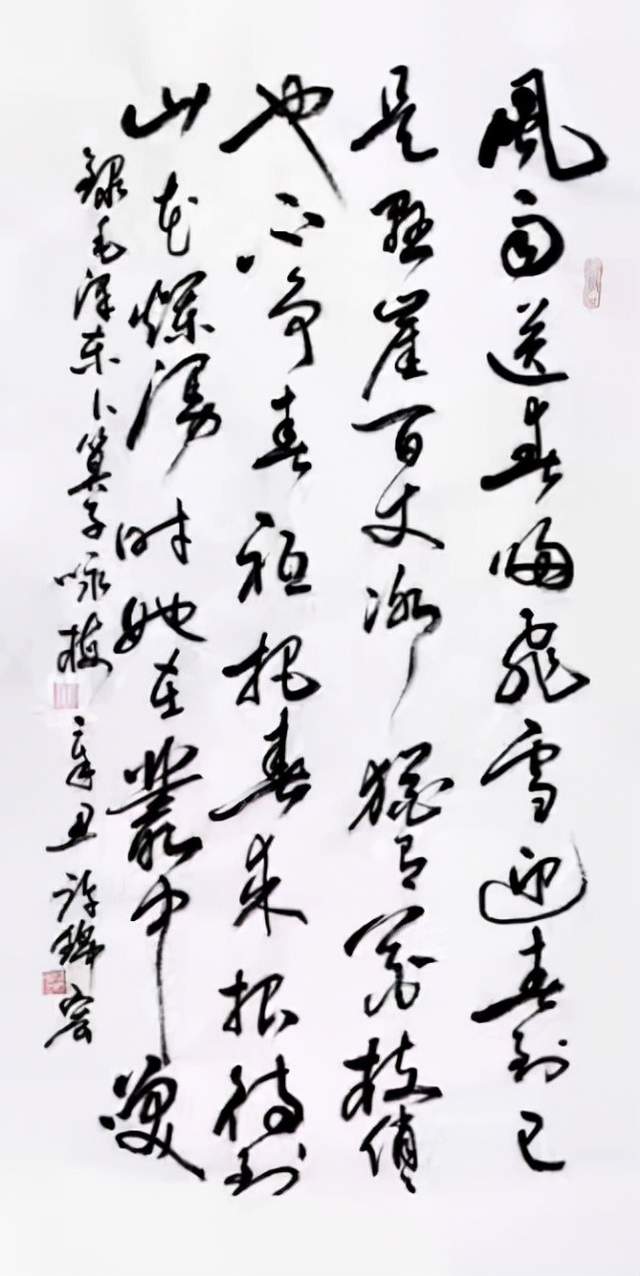 風雨送春歸飛雪迎春到已
是懸崖百丈冰猶有花枝俏々
也不爭春祇把春來報待到
山花爛漫時她在叢中笑
錄毛澤東卜算子咏梅 辛丑 許錦